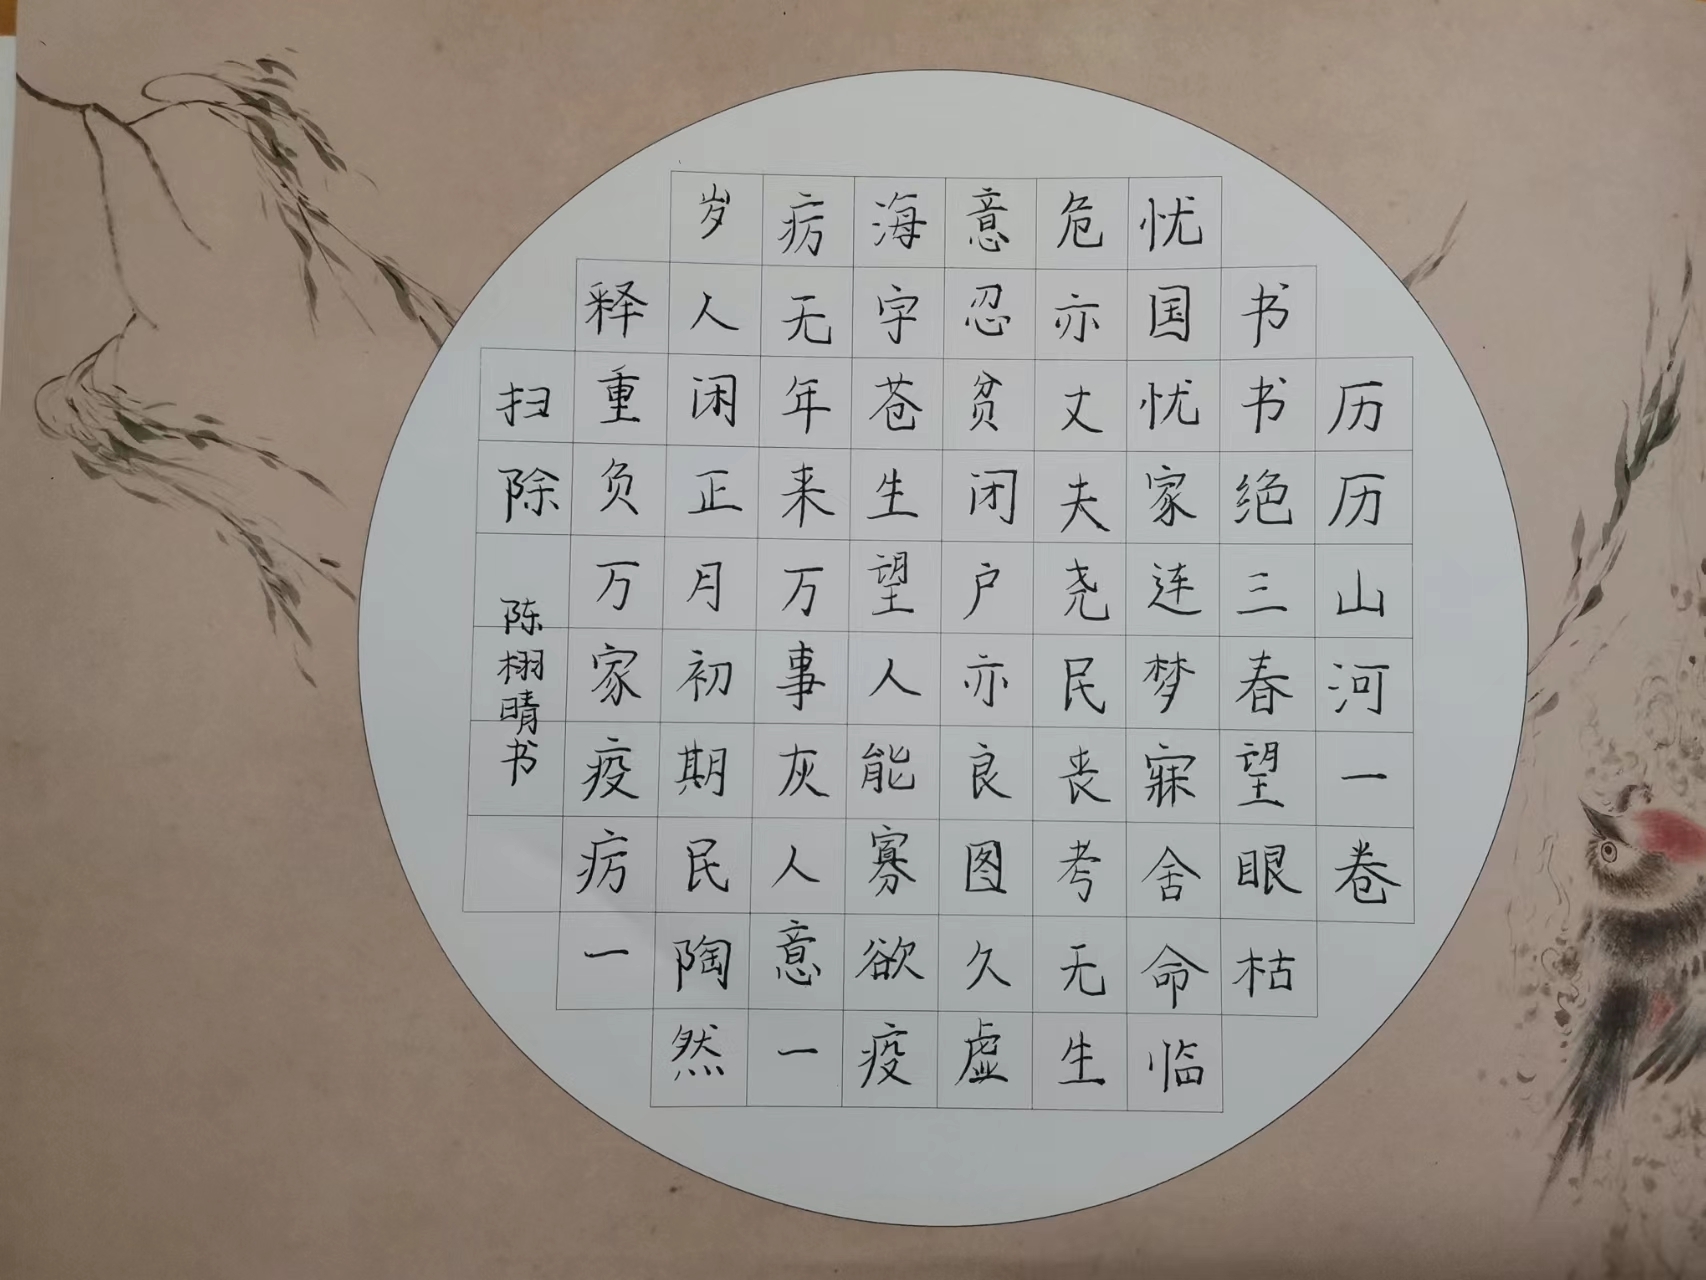 历历山河一卷
书书绝三春望眼枯
忧国忧家连梦寐舍命临
危亦丈夫尧民丧考无生
意忍贫闭户亦良图久虚
海字苍生望人能寡欲疫
疠无年来万事灰人意一
岁人闲正月初期民陶然
释重负万家疫疠一
扫除
陈栩晴书